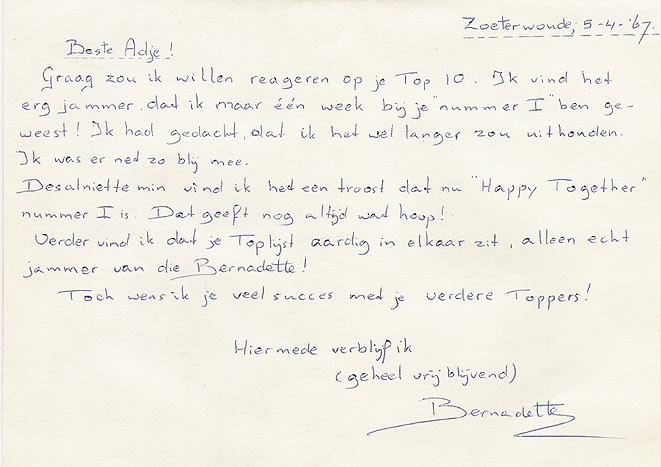 Zoeterwoude, 5-4-'67.
Beste Adje!
Graag zou ik willen reageren op je Top 10. Ik vind het
erg jammer, dat ik maar één week bij je "nummer I" ben ge-
weest! Ik had gedacht, dat ik het wel langer zou uithouden.
Ik was er net zo blij mee.
Desalniettemin vind ik het een troost dat nu "Happy Together"
nummer I is. Dat geeft nog altijd wat hoop!
Verder vind ik dat je Toplijst aardig in elkaar zit, alleen echt
jammer van die Bernadette!
Toch wens ik je veel succes met je verdere Toppers!
Hiermede verblijf ik
(geheel vrijblijvend)
Bernadette